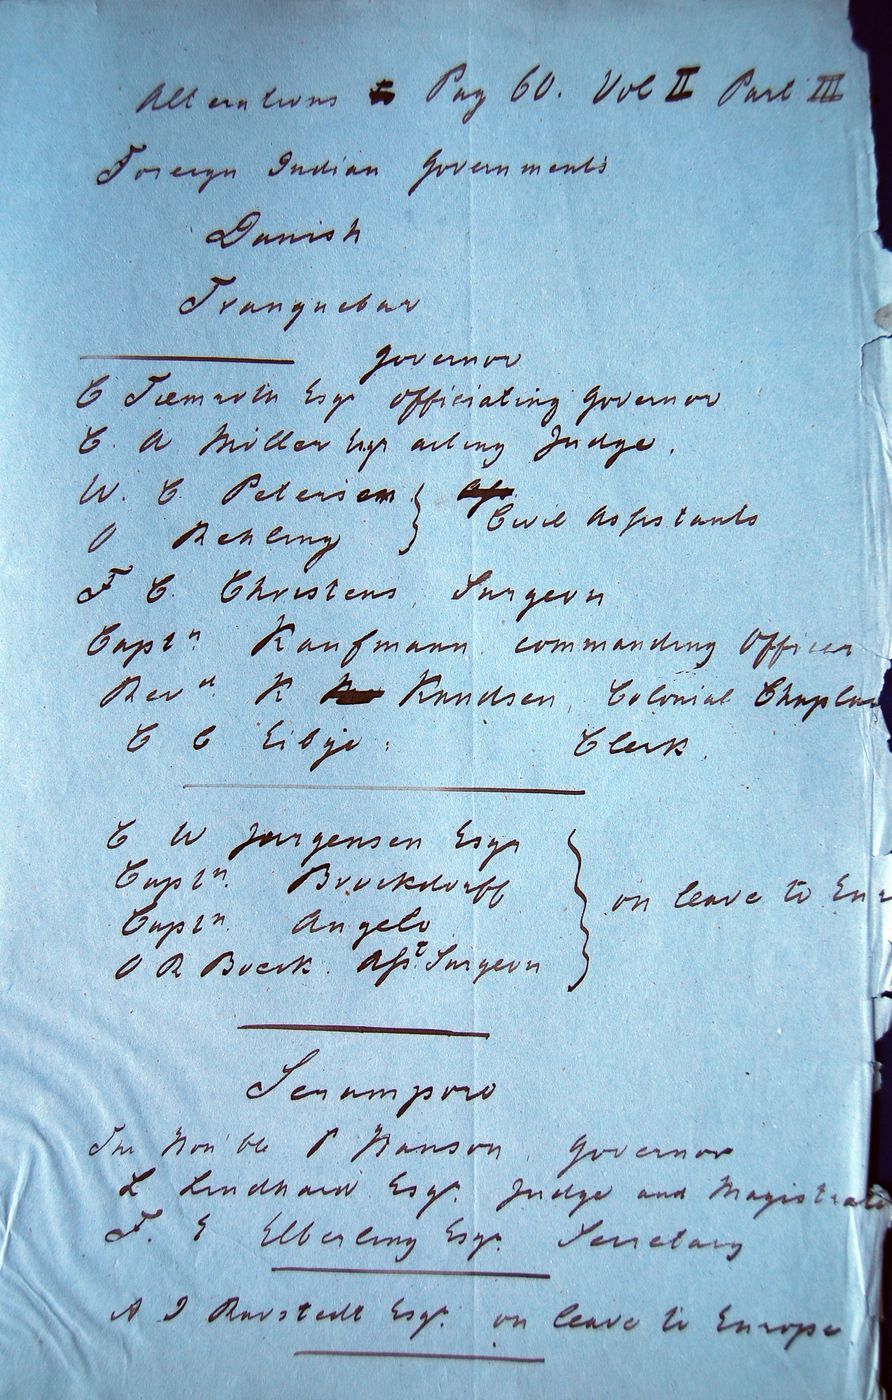 Alterations to Pag 60. Vol II Part III
Foreign Indian Governments
Danish
Tranquebar
Governor
C Tiemroth Esqr officiating Governor
C. A Miller Esqr acting Judge.
W. C Petersen } Civil Assistants
O Rehling
F C. Christens, Surgeon
Captn. Kaufmann commanding Officer
Revd K Knudsen, Colonial Chaplai
C C Eibye. Clerk.
C W Jørgensen Esqr
Captn. Brockdorff } on leave to Eur
Captn Angelo
O R Boeck. Asst. Surgeon
Serampore
The Hon'ble P Hanson, Governor
L Lindhard Esqr. Judge and Magistrate
F. E Elberling Esqr. Secretary
A I Ravstedt Esqr. on leave to Europe